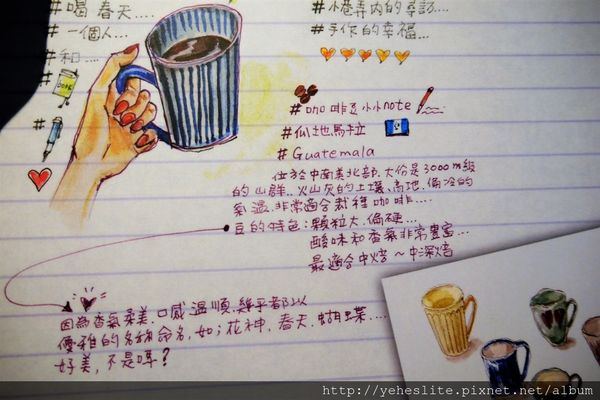 #喝 春天....
#一個人...
#和....
BOOK
#
#小巷弄內的尋訪...
#手作的幸福...
#咖啡豆小小note
#瓜地馬拉
#Guatemala
位於中南美北部.大份是3000m級
的山群..火山灰的土壤.高地.偏冷的
氣溫.非常適合栽種咖啡....
豆的特色:顆粒大.偏硬...
酸味和香氣非常豐富...
最適合中焙～中深焙
因為香氣柔美.口感溫順.幾乎都以
優雅的名稱命名,如;花神.春天.蝴蝶....
好美,不是嗎?
http://yeheslite.pixnet.net/album